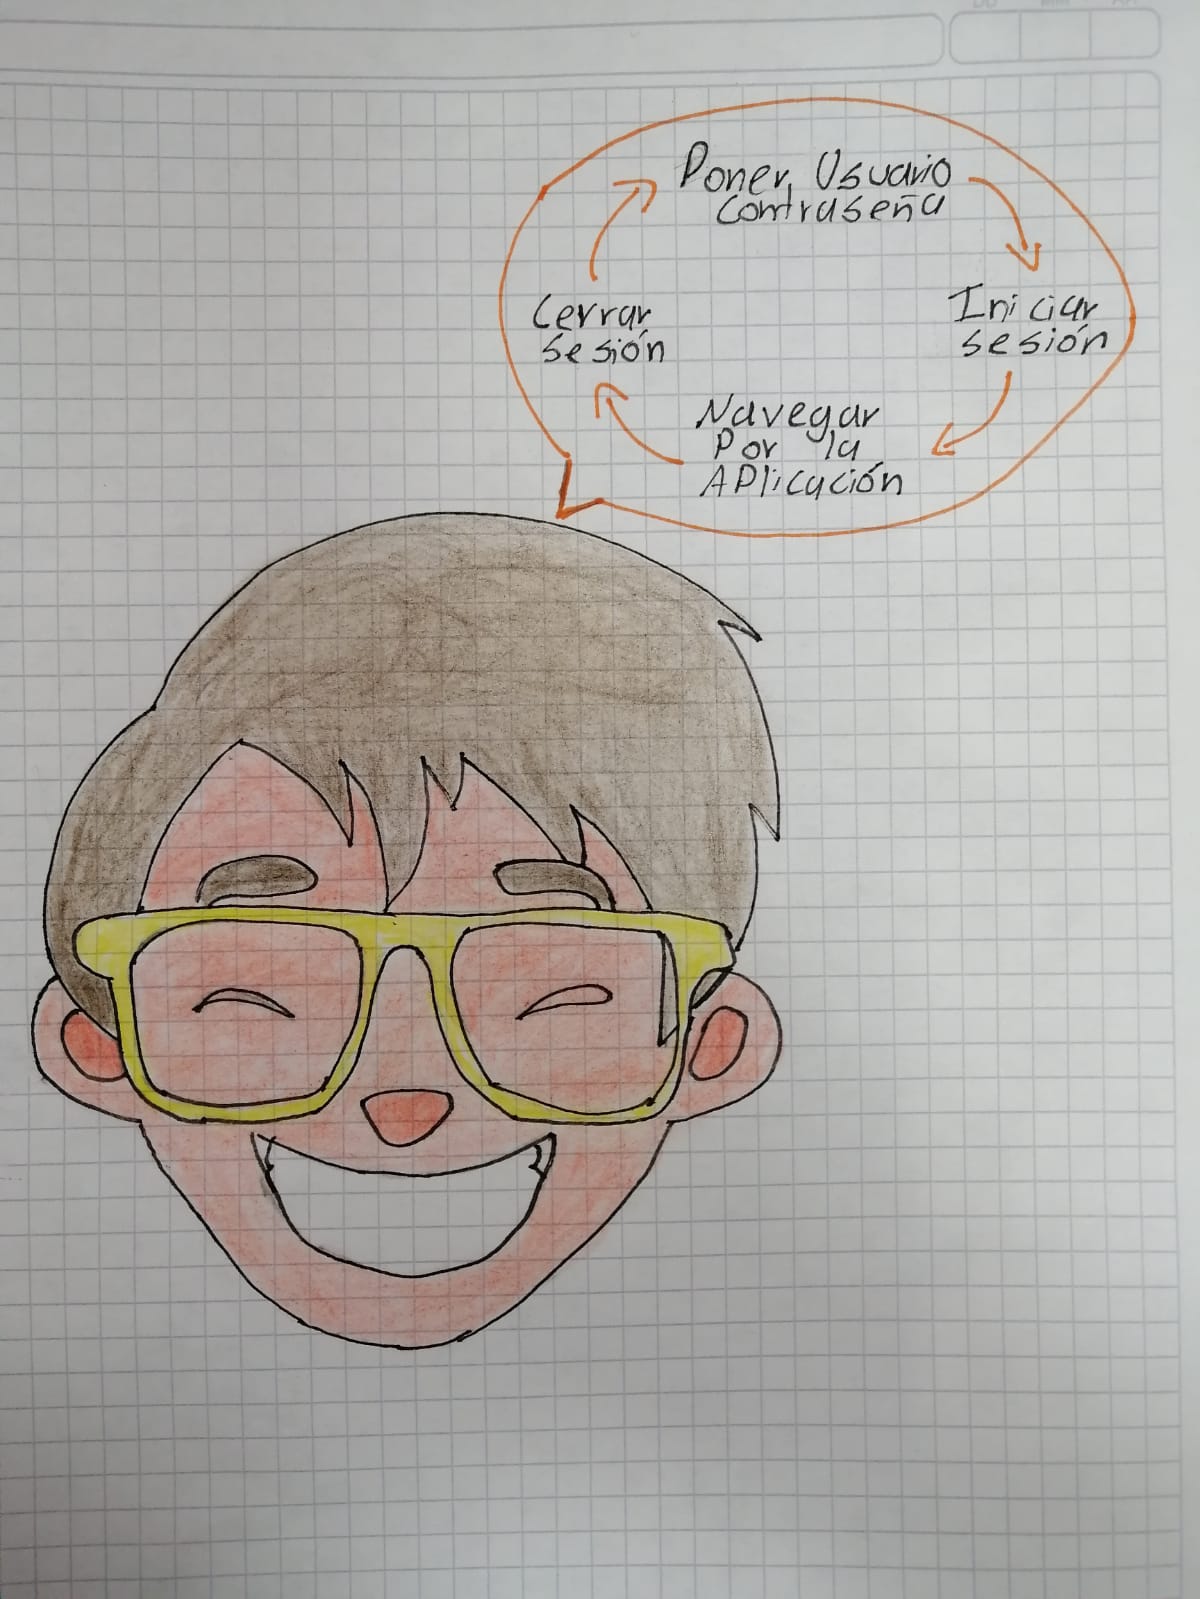 Poner, Usuario
contraseña
Iniciar
sesión
Navegar
Por la
APlicación
Cerrar
sesión